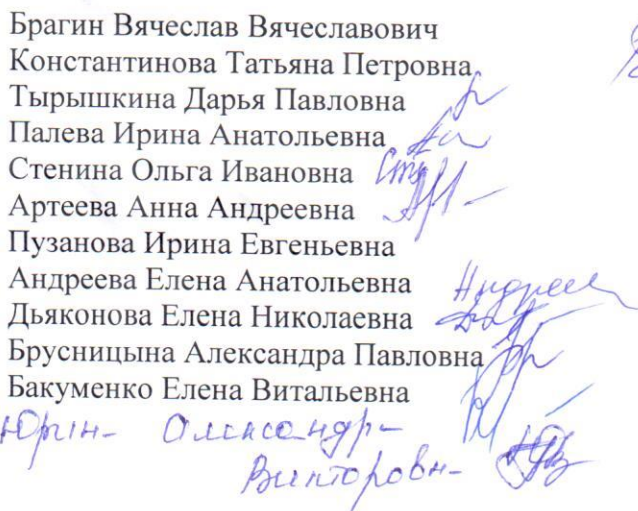 Брагин Вячеслав Вячеславович
Константинова Татьяна Петровна
Тырышкина Дарья Павловна
Палева Ирина Анатольевна
Стенина Ольга Ивановна
Артеева Анна Андреевна
Пузанова Ирина Евгеньевна
Андреева Елена Анатольевна
Дьяконова Елена Николаевна
Брусницына Александра Павловна
Бакуменко Елена Витальевна
Юрин- Александр-
Викторовн-